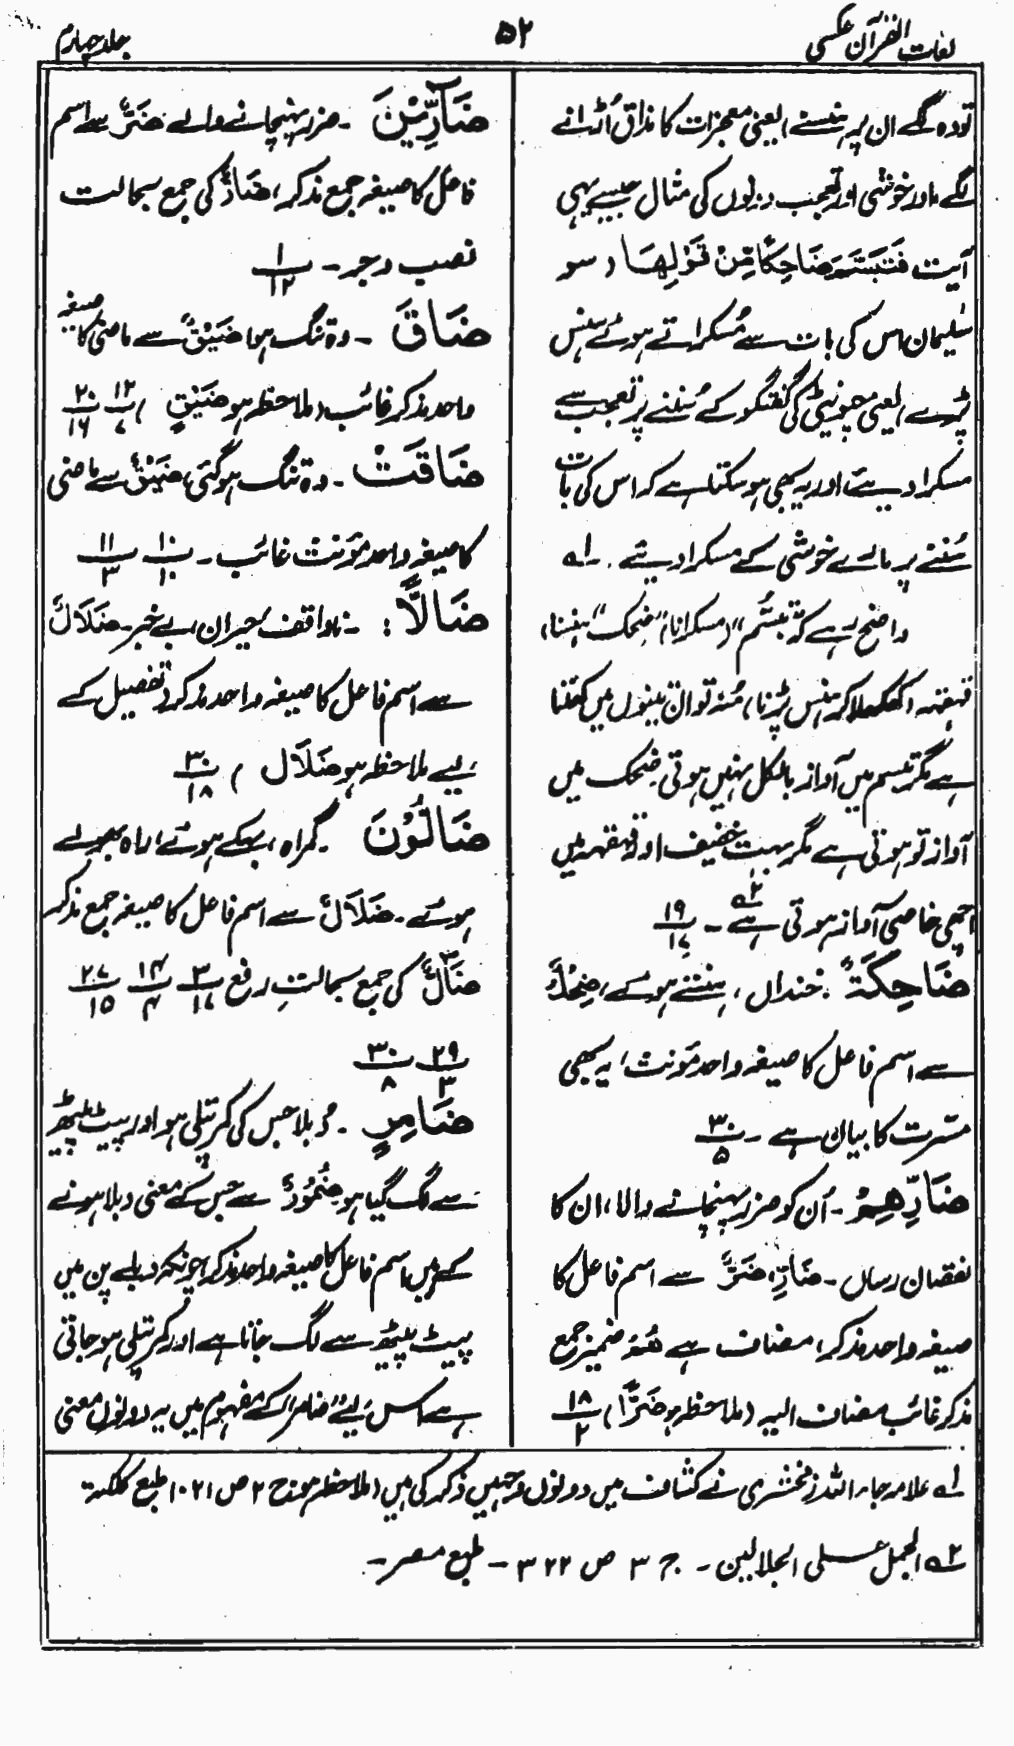 لغات القرآن عکسی
۵۲
جلد چہارم
تو وہ لگے ان پر ہنسنے (یعنی معجزات کا مذاق اڑانے
لگے) اور خوشی اور تعجب دونوں کی مثال جیسے یہی
آیت فَتَبَسَّمَ ضَاحِكًا مِّنْ قَوْلِهَا (سو
سلیمان اس کی بات سے مسکراتے ہوئے ہنس
پڑے) یعنی چیونٹی کی گفتگو کے سننے پر تعجب سے
مسکرا دیئے اور یہ بھی ہو سکتا ہے کہ اس کی بات
سننے پر مارے خوشی کے مسکرا دیئے۔ ا؎
واضح رہے کہ تَبَسُّم" (مسکرانا) "ضحک" ہنسنا،
قہقہہ (کھکھلا کر ہنس پڑنا، منہ تو ان تینوں میں کھلتا
ہے مگر تبسم میں آواز بالکل نہیں ہوتی ضحک میں
آواز تو ہوتی ہے مگر بہت خفیف اور قہقہہ میں
اچھی خاصی آواز ہوتی ہے ۲؎ ۔ ۱۹/۱۷
ضَاحِكَةٌ : خنداں، ہنستے ہوئے، ضِحْكٌ
سے اسم فاعل کا صیغہ واحد مؤنث، یہ بھی
مسرت کا بیان ہے ۔ ۳۰/۵
ضَارِّهِمْ ۔ اُن کو ضرر پہنچانے والا، ان کا
نقصان رساں ۔ ضَارِّ، ضَرٌّ سے اسم فاعل کا
صیغہ واحد مذکر، مضاف ہے هُمْ ضمیر جمع
مذکر غائب مضاف الیہ (ملاحظہ ہو ضَرًّا) ۱۸/۲
ضَآرِّيْنَ ۔ ضرر پہنچانے والے ضَرٌّ سے اسم
فاعل کا صیغہ جمع مذکر، ضَارٌّ کی جمع بحالت
نصب و جر ۔ ۱/۱۲
ضَاقَ ۔ وہ تنگ ہوا ضَيْقٌ سے ماضی کا صیغہ
واحد مذکر غائب (ملاحظہ ہو ضَيْقٍ) ۱۲/۷ ۲۰/۱۶
ضَاقَتْ ۔ وہ تنگ ہو گئی، ضَيْقٌ سے ماضی
کا صیغہ واحد مؤنث غائب ۔ ۱۰/۱۰ ۱۱/۳
ضَالًّا : ۔ ناواقف، حیران، بے خبر ۔ ضَلَالٌ
سے اسم فاعل کا صیغہ واحد مذکر (تفصیل کے
لیے ملاحظہ ہو ضَلَال) ۳۰/۱۸
ضَالُّوْنَ ۔ گمراہ، بہکے ہوئے، راہ بھولے
ہوئے ۔ ضَلَالٌ سے اسم فاعل کا صیغہ جمع مذکر
ضَالٌّ کی جمع بحالتِ رفع ۳/۱۷ ۱۴/۴ ۲۷/۱۵
۲۹/۳ ۳۰/۸
ضَامِرٍ ۔ دُبلا جس کی کمر پتلی ہو اور پیٹ پیٹھ
سے لگ گیا ہو ضُمُوْرٌ سے جس کے معنی دبلا ہونے
کے ہیں اسم فاعل کا صیغہ واحد مذکر چونکہ دبلے پن میں
پیٹ پیٹھ سے لگ جاتا ہے اور کمر پتلی ہو جاتی
ہے اس لیے "ضامر" کے مفہوم میں یہ دونوں معنی
ا؎ علامہ جار اللہ زمخشری نے کشاف میں دونوں وجہیں ذکر کی ہیں (ملاحظہ ہو ج ۲ ص ۱۰۲۱ طبع کلکتہ
۲؎ الجمل علی الجلالین ۔ ج ۳ ص ۳۲۲ ۔ طبع مصر ۔